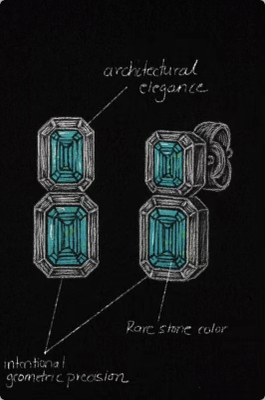 architectural
elegance
Rare stone color
intentional
geometric precision